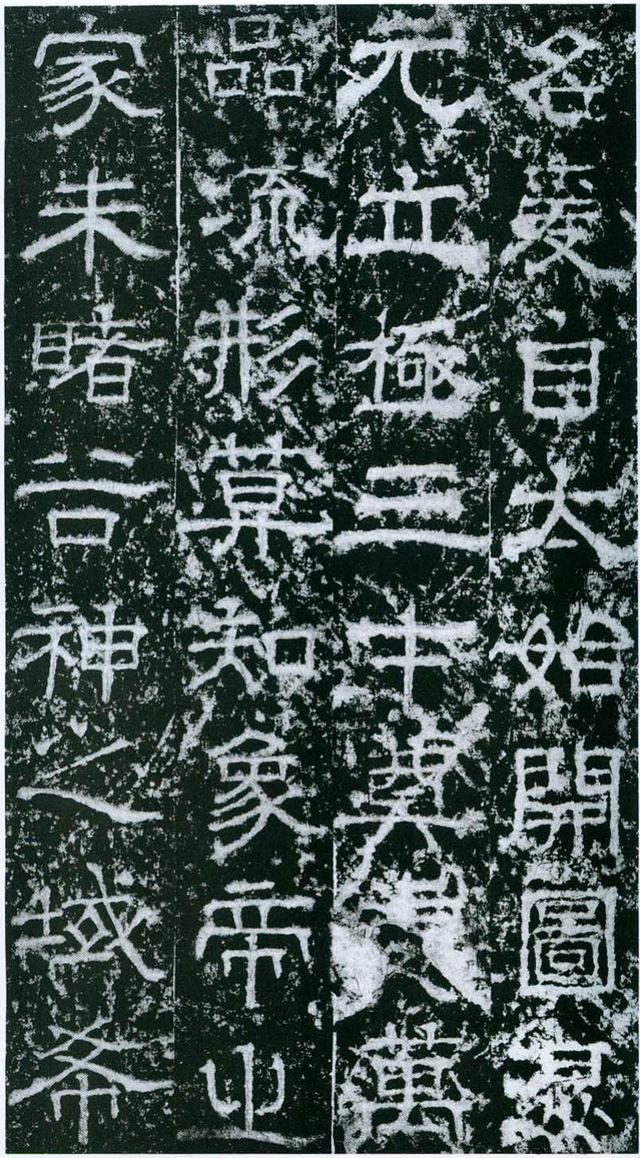 名爰自太始開圖混
元立極三才奠萬
品流形莫知象帝之
家未睹谷神之域希